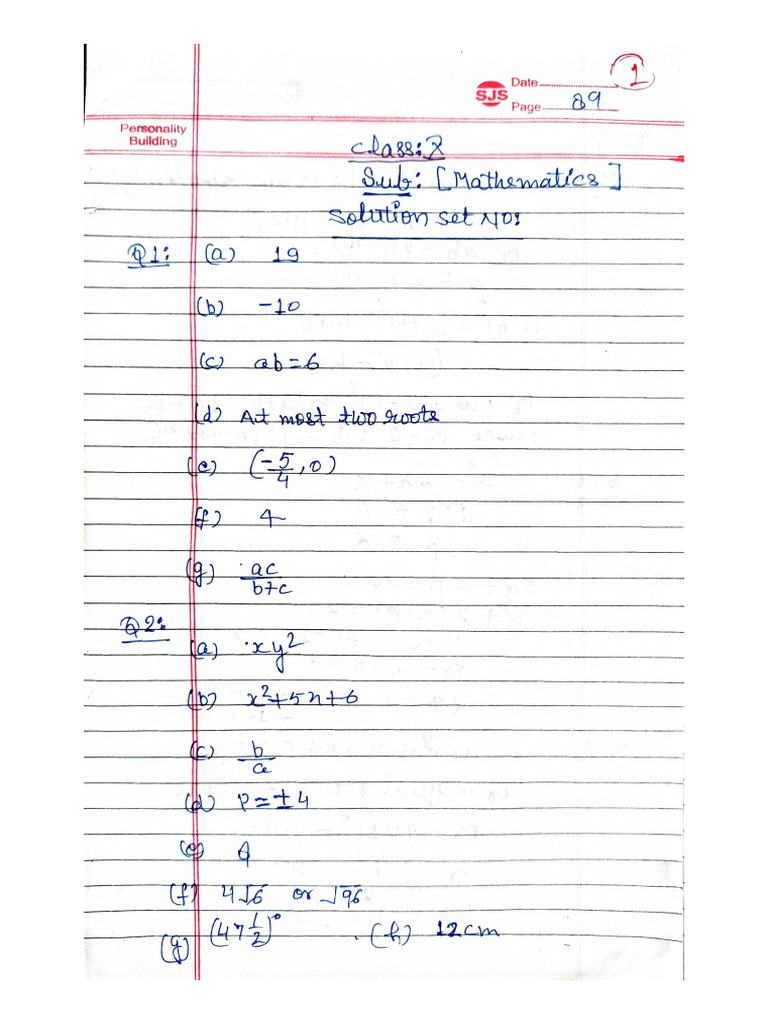 1
SJS Date
Page 89
Personality
Building
Class: X
Sub: [Mathematics]
Solution Set No:
Q1: (a) 19
(b) -10
(c) ab = 6
(d) At most two roots
(e) (-5/4, 0)
(f) 4
(g) ac/b+c
Q2:
(a) xy²
(b) x²+5x+6
(c) b/a
(d) P = ±4
(e)
(f) 4√6 or √96
(g) (47 1/2)° (h) 12cm